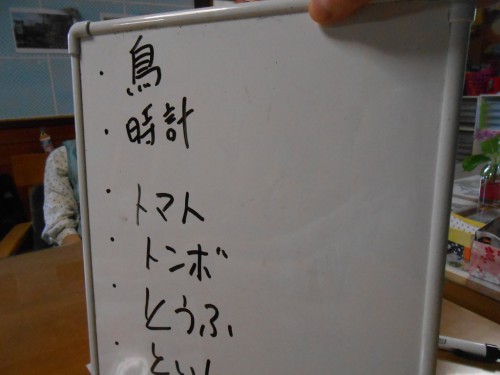 ・鳥
・時計
・トマト
・トンボ
・とうふ